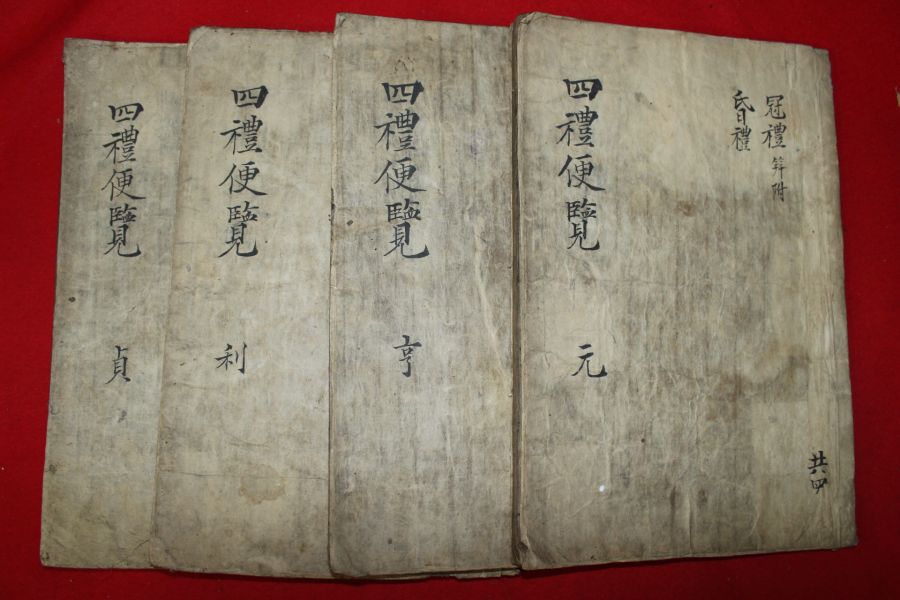 冠禮 筓附
昏禮
共四
四禮便覽 元
四禮便覽 亨
四禮便覽 利
四禮便覽 貞